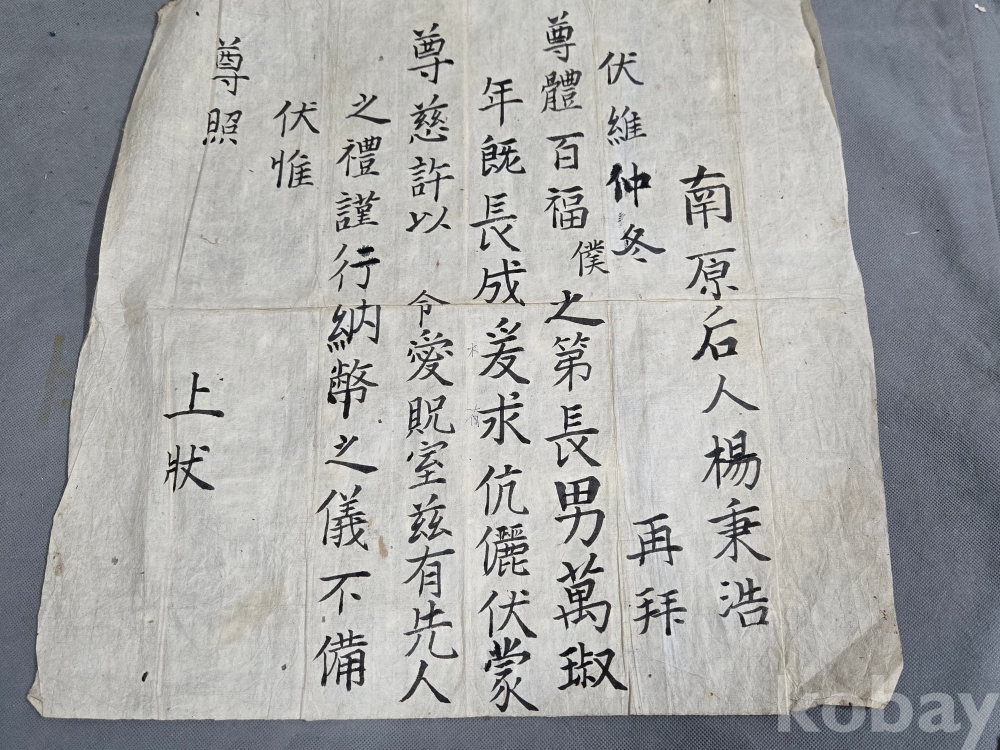 南原后人楊秉浩
再拜
伏維仲冬
尊體百福僕之第長男萬琡
年旣長成爰求伉儷伏蒙
尊慈許以令愛貺室玆有先人
之禮謹行納幣之儀不備
伏惟
尊照
上狀
kobay